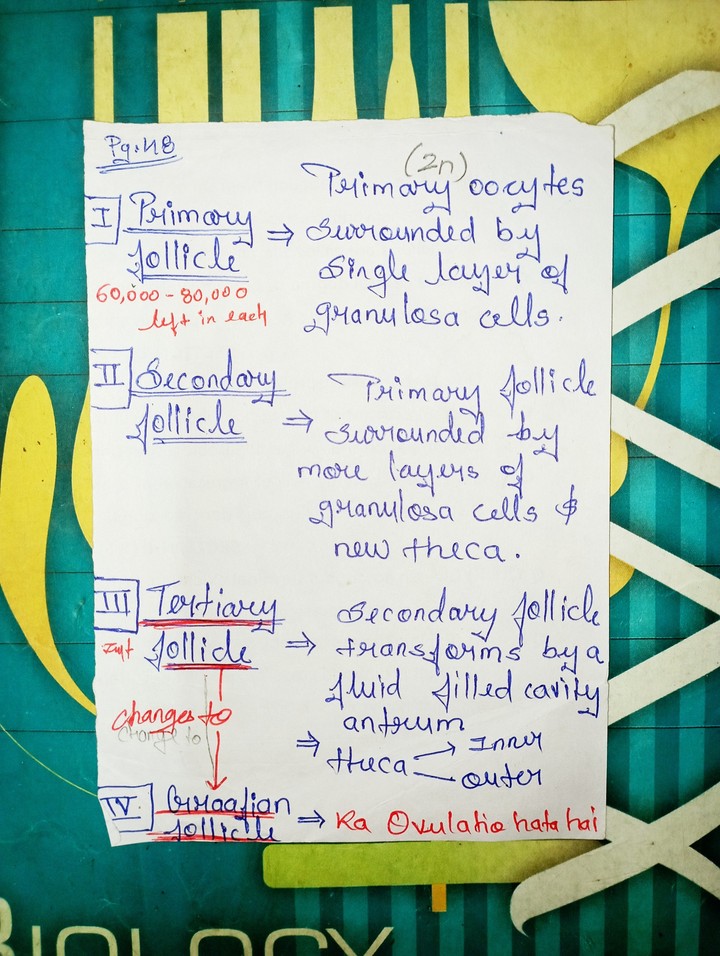 Pg. 48
(2n)
I Primary follicle ⇒ Primary oocytes
surrounded by
single layer of
granulosa cells.
60,000 - 80,000
left in each
II Secondary follicle ⇒ Primary follicle
surrounded by
more layers of
granulosa cells &
new theca.
III Tertiary follicle ⇒ Secondary follicle
transforms by a
fluid filled cavity
antrum
⇒ theca → Inner
→ outer
changes to
change to
IV. Graafian follicle ⇒ Ka Ovulatio hata hai
BIOLOGY